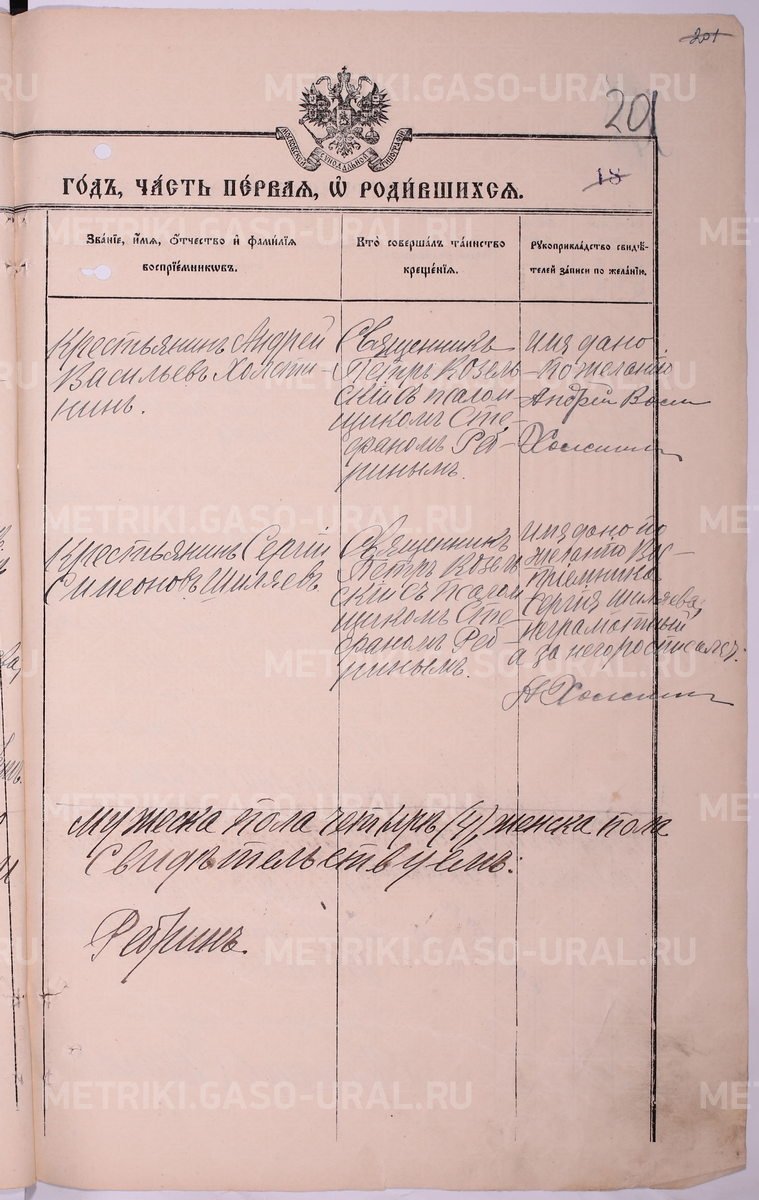 201
201
18
МОСКОВСКОЙ СѴНОДАЛЬНОЙ ТИПОГРАФІИ
ГО́ДЪ, ЧА́СТЬ ПЕ́РВАѦ, Ѡ҆ РОДИ́ВШИХСѦ.
Зва́нїе, и҆́мѧ, о҆́тчество и҆ фами́лїѧ
воспрїе́мникѡвъ.
Кто̀ соверша́лъ та́инство
креще́нїѧ.
Рꙋкоприкла́дство свидѣ́-
телей за́писи по жела́нїю.
Крестьянинъ Андрей
Васильевъ Холати-
нинъ.
Священникъ
Петръ Козель
скій съ псалом
щикомъ Сте
фаномъ Реб-
ринымъ.
имя дано
по желанію
Андрей Васи
Крестьянинъ Сергій
Симеоновъ Шиляевъ
Священникъ
Петръ Козель
скій съ псалом
щикомъ Сте
фаномъ Реб-
ринымъ.
Имя дано по
желанію вос-
пріемника
Сергія Шиляева,
неграмотный
а за него росписался:
мужеска пола четыре (4) женска пола
Свидѣтельствуемъ:
Ребринъ.
METRIKI.GASO-URAL.RU